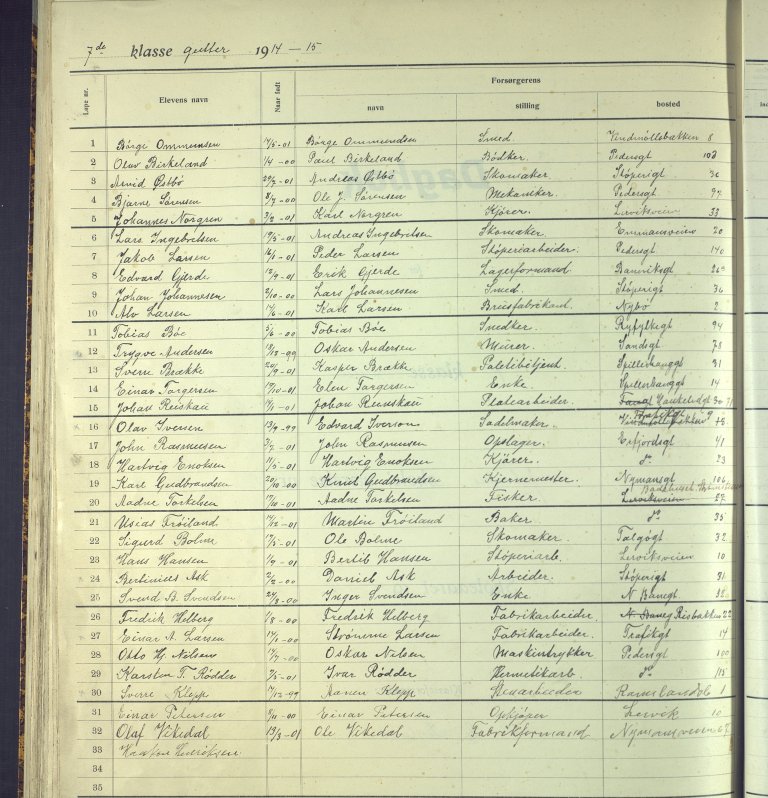 7de klasse gutter 1914-15
Løpe nr. Elevens navn Naar født Forsørgerens
navn stilling bosted
1 Børge Ommundsen 14/5-01 Børge Ommundsen Smed Vindmøllebakken 8
2 Olav Birkeland 1/4-00 Paul Birkeland Bødker. Pedersgt 103
3 Arvid Østbø 29/7-01 Andreas Østbø Skomaker Støperigt 36
4 Bjarne Sørensen 8/7-00 Ole J. Sørensen Mekaniker. Pedersgt 97
5 Johannes Norgren 3/2-01 Karl Norgren Kjører. Lerviksveien 33
6 Lars Ingebretsen 19/5-01 Andreas Ingebretsen Skomaker Emmausveien 20
7 Jakob Larsen 16/1-01 Peder Larsen Støperiarbeider. Pedersgt 140
8 Edvard Gjerde 12/9-01 Erik Gjerde Lagerformand. Banviksgt
9 Johan Johannesen 2/10-00 Lars Johannesen Smed. Støperigt 36
10 Alv Larsen 14/6-01 Karl Larsen Brusfabrikant Nybø 2
11 Tobias Bøe 5/6-00 Tobias Bøe Snedker. Ryfylkegt 94
12 Trygve Andersen 19/12-99 Oskar Andersen Murer. Sandsgt 78
13 Sverre Brække 20/9-01 Kasper Brække Politibetjent. Spilderhauggt 31
14 Einar Torgersen 17/10-01 Elen Torgersen Enke. Spilderhauggt 14
15 Johan Reinskau 17/1-01 Johan Reinskau Platearbeider. Haukeligt
16 Olav Iversen 13/9-99 Edvard Iverson Sadelmaker. Vindmøllebakken Trafikgt 9
17 John Rasmussen 2/7-01 John Rasmussen Opslager. Erfjordsgt 41
18 Hartvig Enoksen 11/5-01 Hartvig Enoksen Kjører. do 23
19 Karl Gudbrandsen 20/10-00 Knud Gudbrandsen Kjernemester. Nymansgt 106
20 Aadne Torkelsen 17/10-01 Aadne Torkelsen Fisker. Lerviksveien 27
21 Usias Frøiland 14/12-01 Marten Frøiland Baker. do 35
22 Sigurd Bolme 17/5-01 Ole Bolme Skomaker. Talgøgt 32
23 Hans Hansen 1/9-01 Bertil Hansen Støperiarb. Lerviksveien 10
24 Bertinius Ask 2/2-00 Daniel Ask Arbeider. Støperigt 31
25 Svend B. Svendsen 24/8-00 Inger Svendsen Enke N Banegt
26 Fredrik Helberg 1/8-00 Fredrik Helberg Fabrikarbeider. N. Baneg Risbakken 22
27 Einar A. Larsen 14/1-00 Larsen Fabrikarbeider. Trafikgt 14
28 Otto Hj. Nilsen 14/7-00 Oskar Nilsen Maskintrykker Pedersgt 100
29 Karsten T. Rødder 7/5-01 Ivar Rødder Hermetikarb. do 115
30 Sverre Klepp 17/12-99 Aanen Klepp Stenarbeider Ramslandsb 1
31 Einar Petersen 8/11-00 Einar Petersen Opkjøper Lervik 10
32 Olaf Vikedal 13/3-01 Ole Vikedal Fabrikformand Nymansveien 67
33
34
35